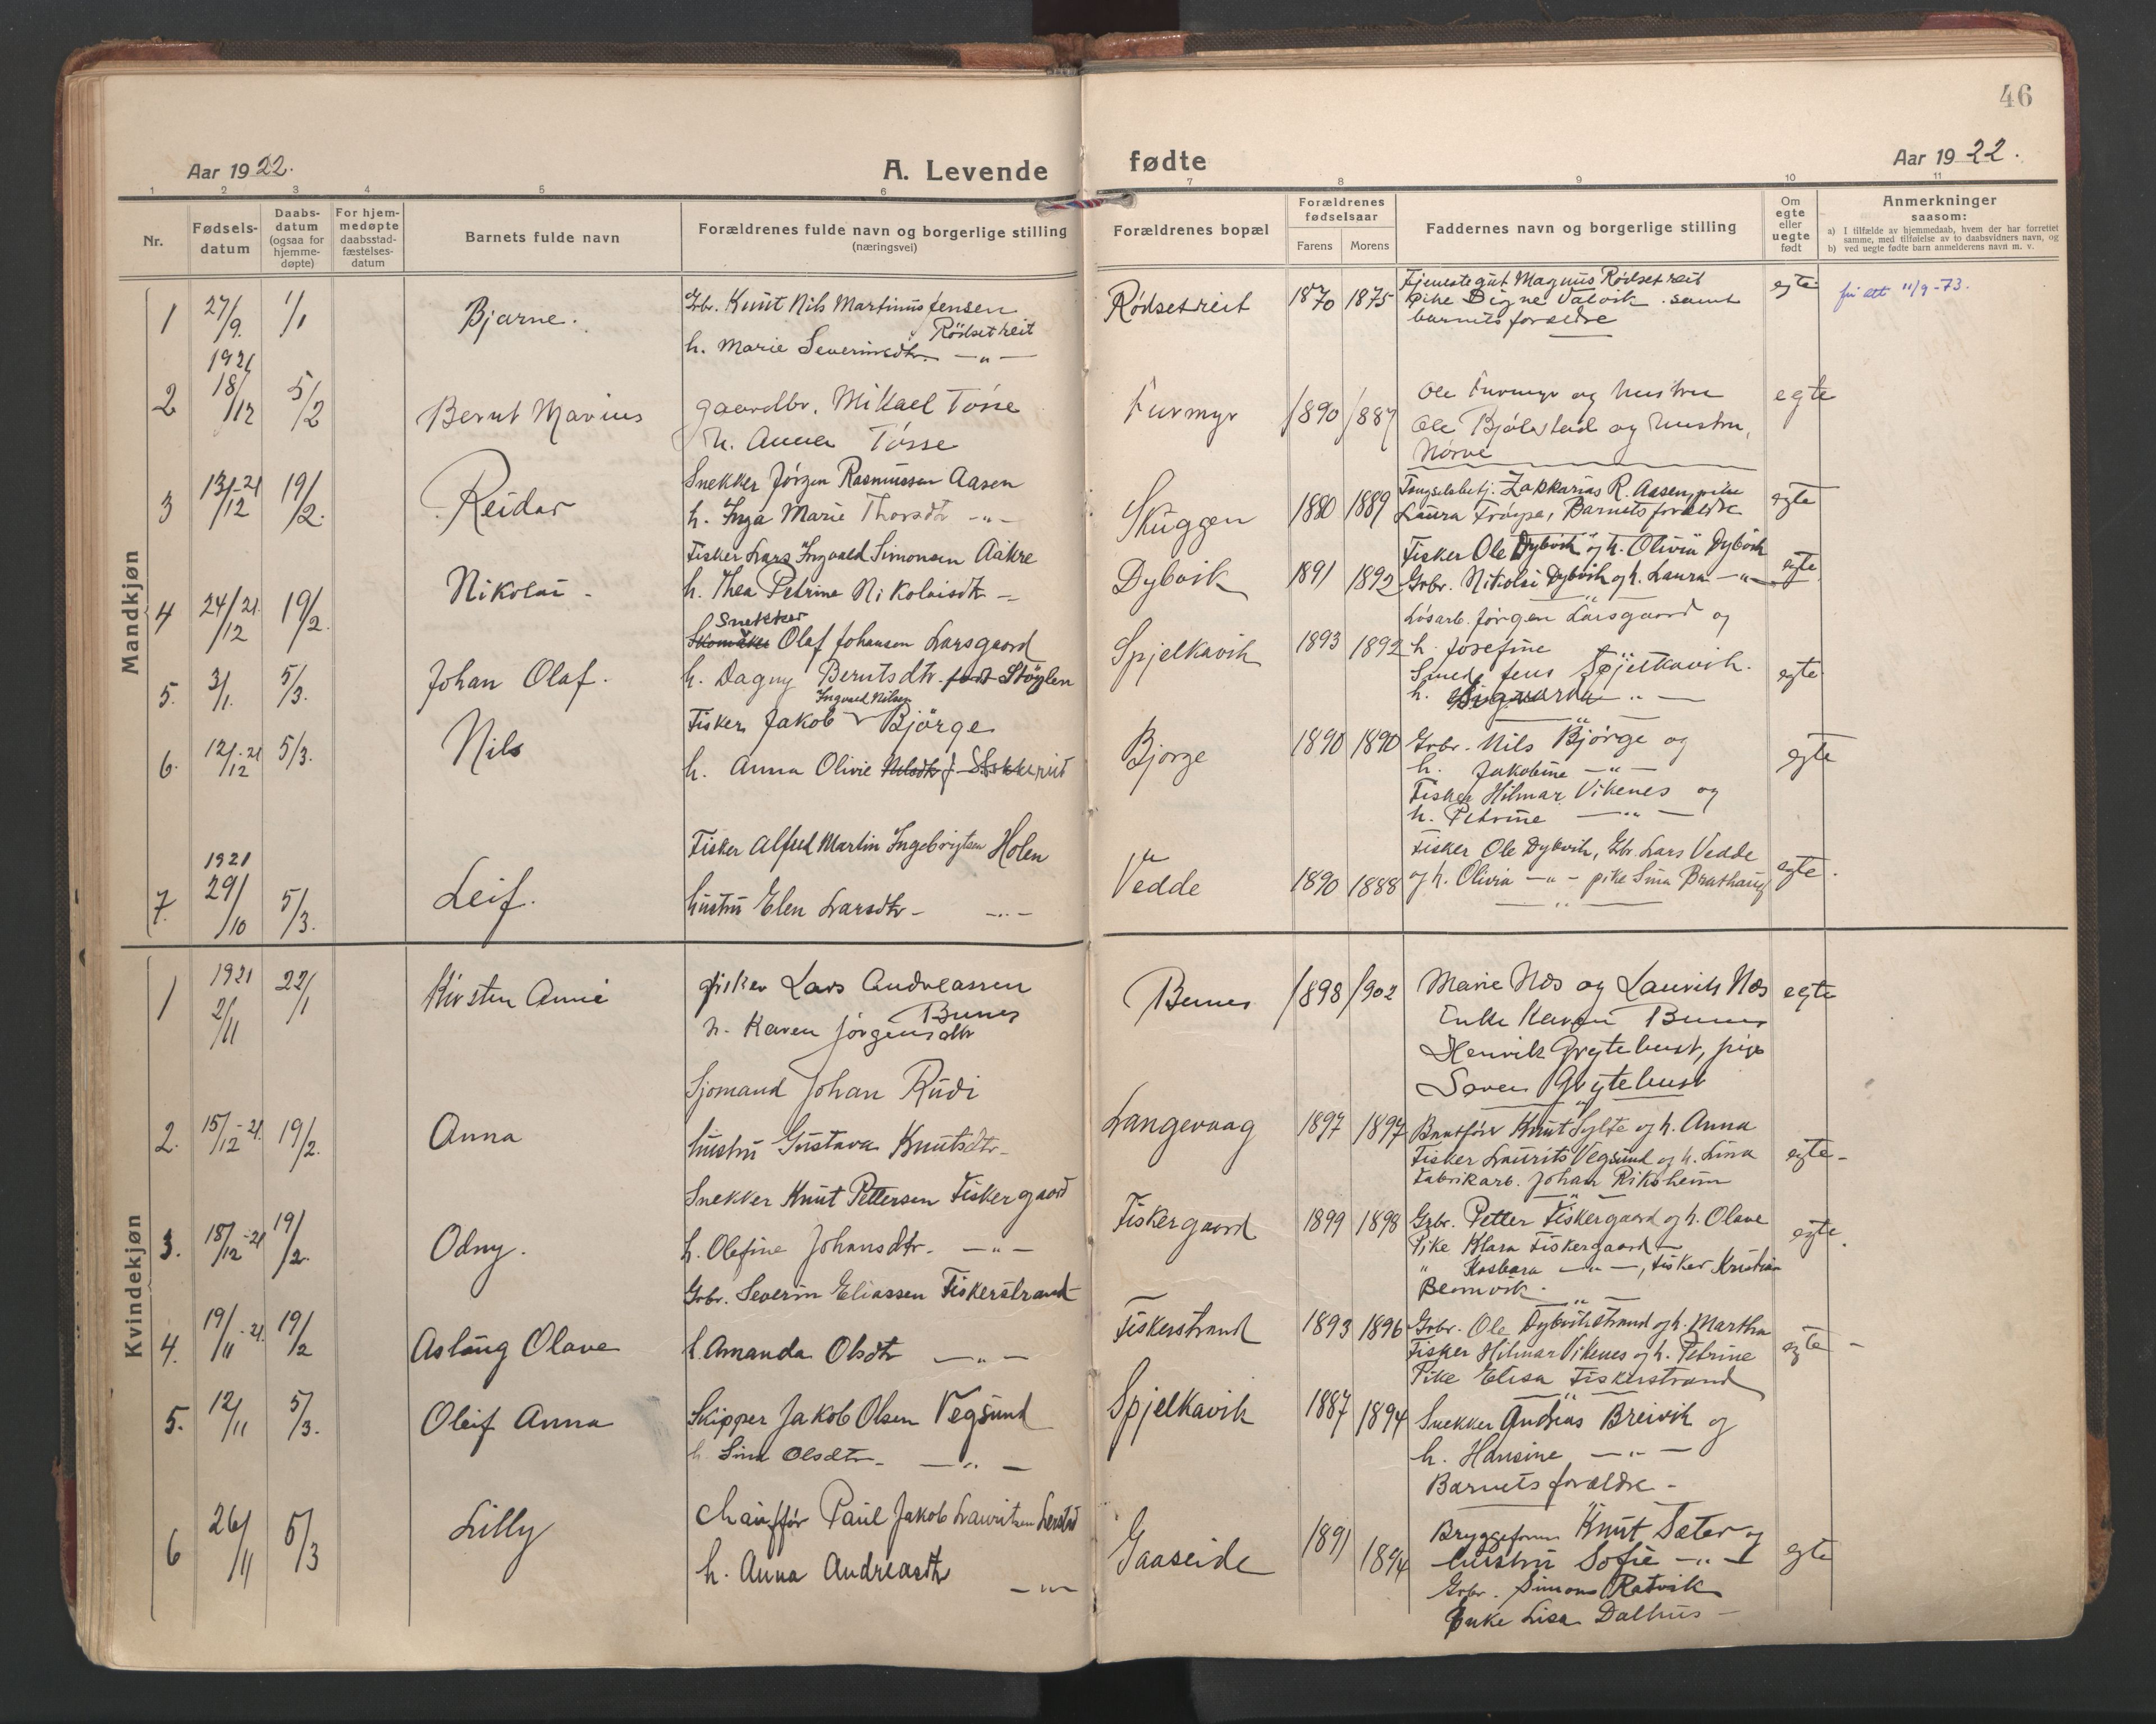 46
Aar 1922.
A. Levende fødte
Aar 1922.
1 2 3 4 5 6 7 8 9 10 11
Nr.
Fødsels-
datum
Daabs-
datum
(ogsaa for
hjemme-
døpte)
For hjem-
medøpte
daabsstad-
fæstelses-
datum
Barnets fulde navn
Forældrenes fulde navn og borgerlige stilling
(næringsvei)
Forældrenes bopæl
Forældrenes
fødselsaar
Farens Morens
Faddernes navn og borgerlige stilling
Om
egte
eller
uegte
født
Anmerkninger
saasom:
a) I tilfælde av hjemmedaab, hvem der har forrettet
samme, med tilføielse av to daabsvidners navn, og
b) ved uegte fødte barn anmelderens navn m. v.
Mandkjøn
1 27/9. 1921 1/1 Bjarne.
Gbr. Knut Nils Martinus Jensen
Rødsetreit
h. Marie Severinsdtr. — " —
Rødsetreit 1870 1875
Tjenestegut Magnus Rødsetreit
Pike Signe Valvik samt
barnets forældre
egte
fri att 11/9-73.
2 18/12 5/2 Bernt Marius
gaardbr. Mikael Tosse
h. Anna Tosse
Furmyr 1890 1887
Ole Furmyr og hustru
Ole Bjølstad og hustru,
Nørve
egte
3 13/12-21 19/2. Reidar
Snekker Jørgen Rasmussen Aasen
h. Inga Marie Thorsdtr — " —
Skuggen 1880 1889
Fengselsbetj. Zakkarias R. Aasen, pike
Laura , Barnets forældre
egte
4 24/12 21. 19/2. Nikolai -
Fisker Lars Ingvald Simonsen Aakre
h. Thea Petrine Nikolaisdtr —
Dybvik 1891 1892
Fisker Ole Dybvik og h. Olivia Dybvik
Grbr. Nikolai Dybvik og h. Laura — " —
egte.
5. 3/1. 5/3. Johan Olaf.
Snekker
Skomaker Olaf Johansen Larsgaard
h. Dagny Berntsdtr. født Støylen
Spjelkavik 1893 1892
Løsarb. Jørgen Larsgaard og
h. Josefine "
Smed Jens Spjelkavik.
h. " —
egte
6. 12/12-21 5/3. Nils
Ingvald Nilsen
Fisker Jakob Bjørge
h. Anna Olivie Nilsdtr f.
Bjørge 1890 1890
Grbr. Nils Bjørge og
h. Jakobine — " —
Fisker Hilmar Vikenes og
h. Petrine — " —
egte
7. 1921 29/10 5/3. Leif.
Fisker Alfred Martin Ingebrigtsen Holen
hustru Elen Larsdtr — " —
Vedde 1890 1888
Fisker Ole Dybvik, Gbr. Lars Vedde
og h. Olivia — " — pike Sina Brathaug
egte.
Kvindekjøn
1 1921 2/11 22/1 Kirsten Annie
fisker Lars Andreassen
Bunes
h. Karen Jørgensdtr
Bunes 1898 1902
Marie Næs og Laurits Næs
Enke Karen Bunes
Henrik Grytebust, pige
Soven Grytebust
egte
2. 15/12-21. 19/2. Anna
Sjømand Johan Rudi
hustru Gustava Knutsdtr-
Langevaag 1897 1897
Knut Sylte og h. Anna
Fisker Laurits Vegsund og h. Lina
Fabrikarb. Johan Riksheim
egte-
3. 18/12-21 19/2. Odny.
Snekker Knut Pettersen Fiskergaard
h. Olefine Johansdtr. — " —
Fiskergaard 1899 1898
Grbr. Petter Fiskergaard og h. Olave
Pike Klara Fiskergaard —
" — " —, fisker Kristian
egte.
4. 19/11-21. 19/2 Aslaug Olave
Grbr. Severin Eliassen Fiskerstrand
h Amanda Olsdtr — " —
Fiskerstrand 1893 1896
Grbr. Ole Dybvikstrand og h. Martha
Fisker Hilmar Vikenes og h. Petrine
Pike Elisa Fiskerstrand
egte —
5. 12/11 5/3. Oleif Anna
Skipper Jakob Olsen Vegsund
h. Lina Olsdtr. — " —
Spjelkavik 1887 1894
Snekker Andreas Breivik og
h. Hansine — " —
Barnets forældre -
6 26/11 5/3 Lilly
chauffør Paul Jakob Lauritsen Lerstad
h. Anna Andreasdtr — " —
Gaaseide 1891 1894
Bryggeform Knut Sæter og
hustru Sofie — " —
Grbr. Simons Ratvik
Enke Lisa Dalhus —
egte